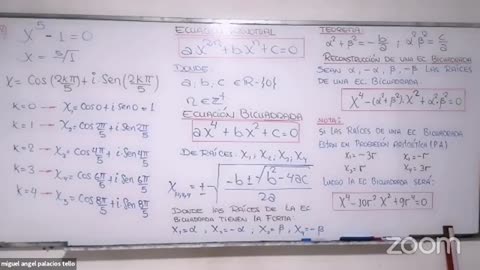 x⁵ - 1 = 0
x = ⁵√1
x = Cos(2kπ/5) + i Sen(2kπ/5)
k=0 → x₁ = Cos0 + i Sen0 = 1
k=1 → x₂ = Cos 2π/5 + i Sen 2π/5
k=2 → x₃ = Cos 4π/5 + i Sen 4π/5
k=3 → x₄ = Cos 6π/5 + i Sen 6π/5
k=4 → x₅ = Cos 8π/5 + i Sen 8π/5
ax²ⁿ + bxⁿ + c = 0
DONDE:
a, b, c ∈ R-{0}
n ∈ Z⁺
ECUACIÓN BICUADRADA
ax⁴ + bx² + c = 0
DE RAÍCES: x₁, x₂, x₃, x₄
x₁,₂,₃,₄ = ±√((-b ± √(b²-4ac))/2a)
DONDE LAS RAÍCES DE LA EC
BICUADRADA TIENEN LA FORMA:
x₁=α, x₂=-α, x₃=β, x₄=-β
TEOREMA:
α²+β² = -b/a ; α²β² = c/a
RECONSTRUCCIÓN DE UNA EC BICUADRADA
SEAN α, -α, β, -β LAS RAÍCES
DE UNA EC. BICUADRADA:
x⁴-(α²+β²)x²+α²β²=0
NOTA:
SI LAS RAÍCES DE UNA EC BICUADRADA
ESTÁN EN PROGRESIÓN ARITMÉTICA (P.A)
x₁=-3r x₂=-r
x₃=r x₄=3r
LUEGO LA EC BICUADRADA SERÁ:
x⁴-10r²x²+9r⁴=0
zoom
miguel angel palacios tello